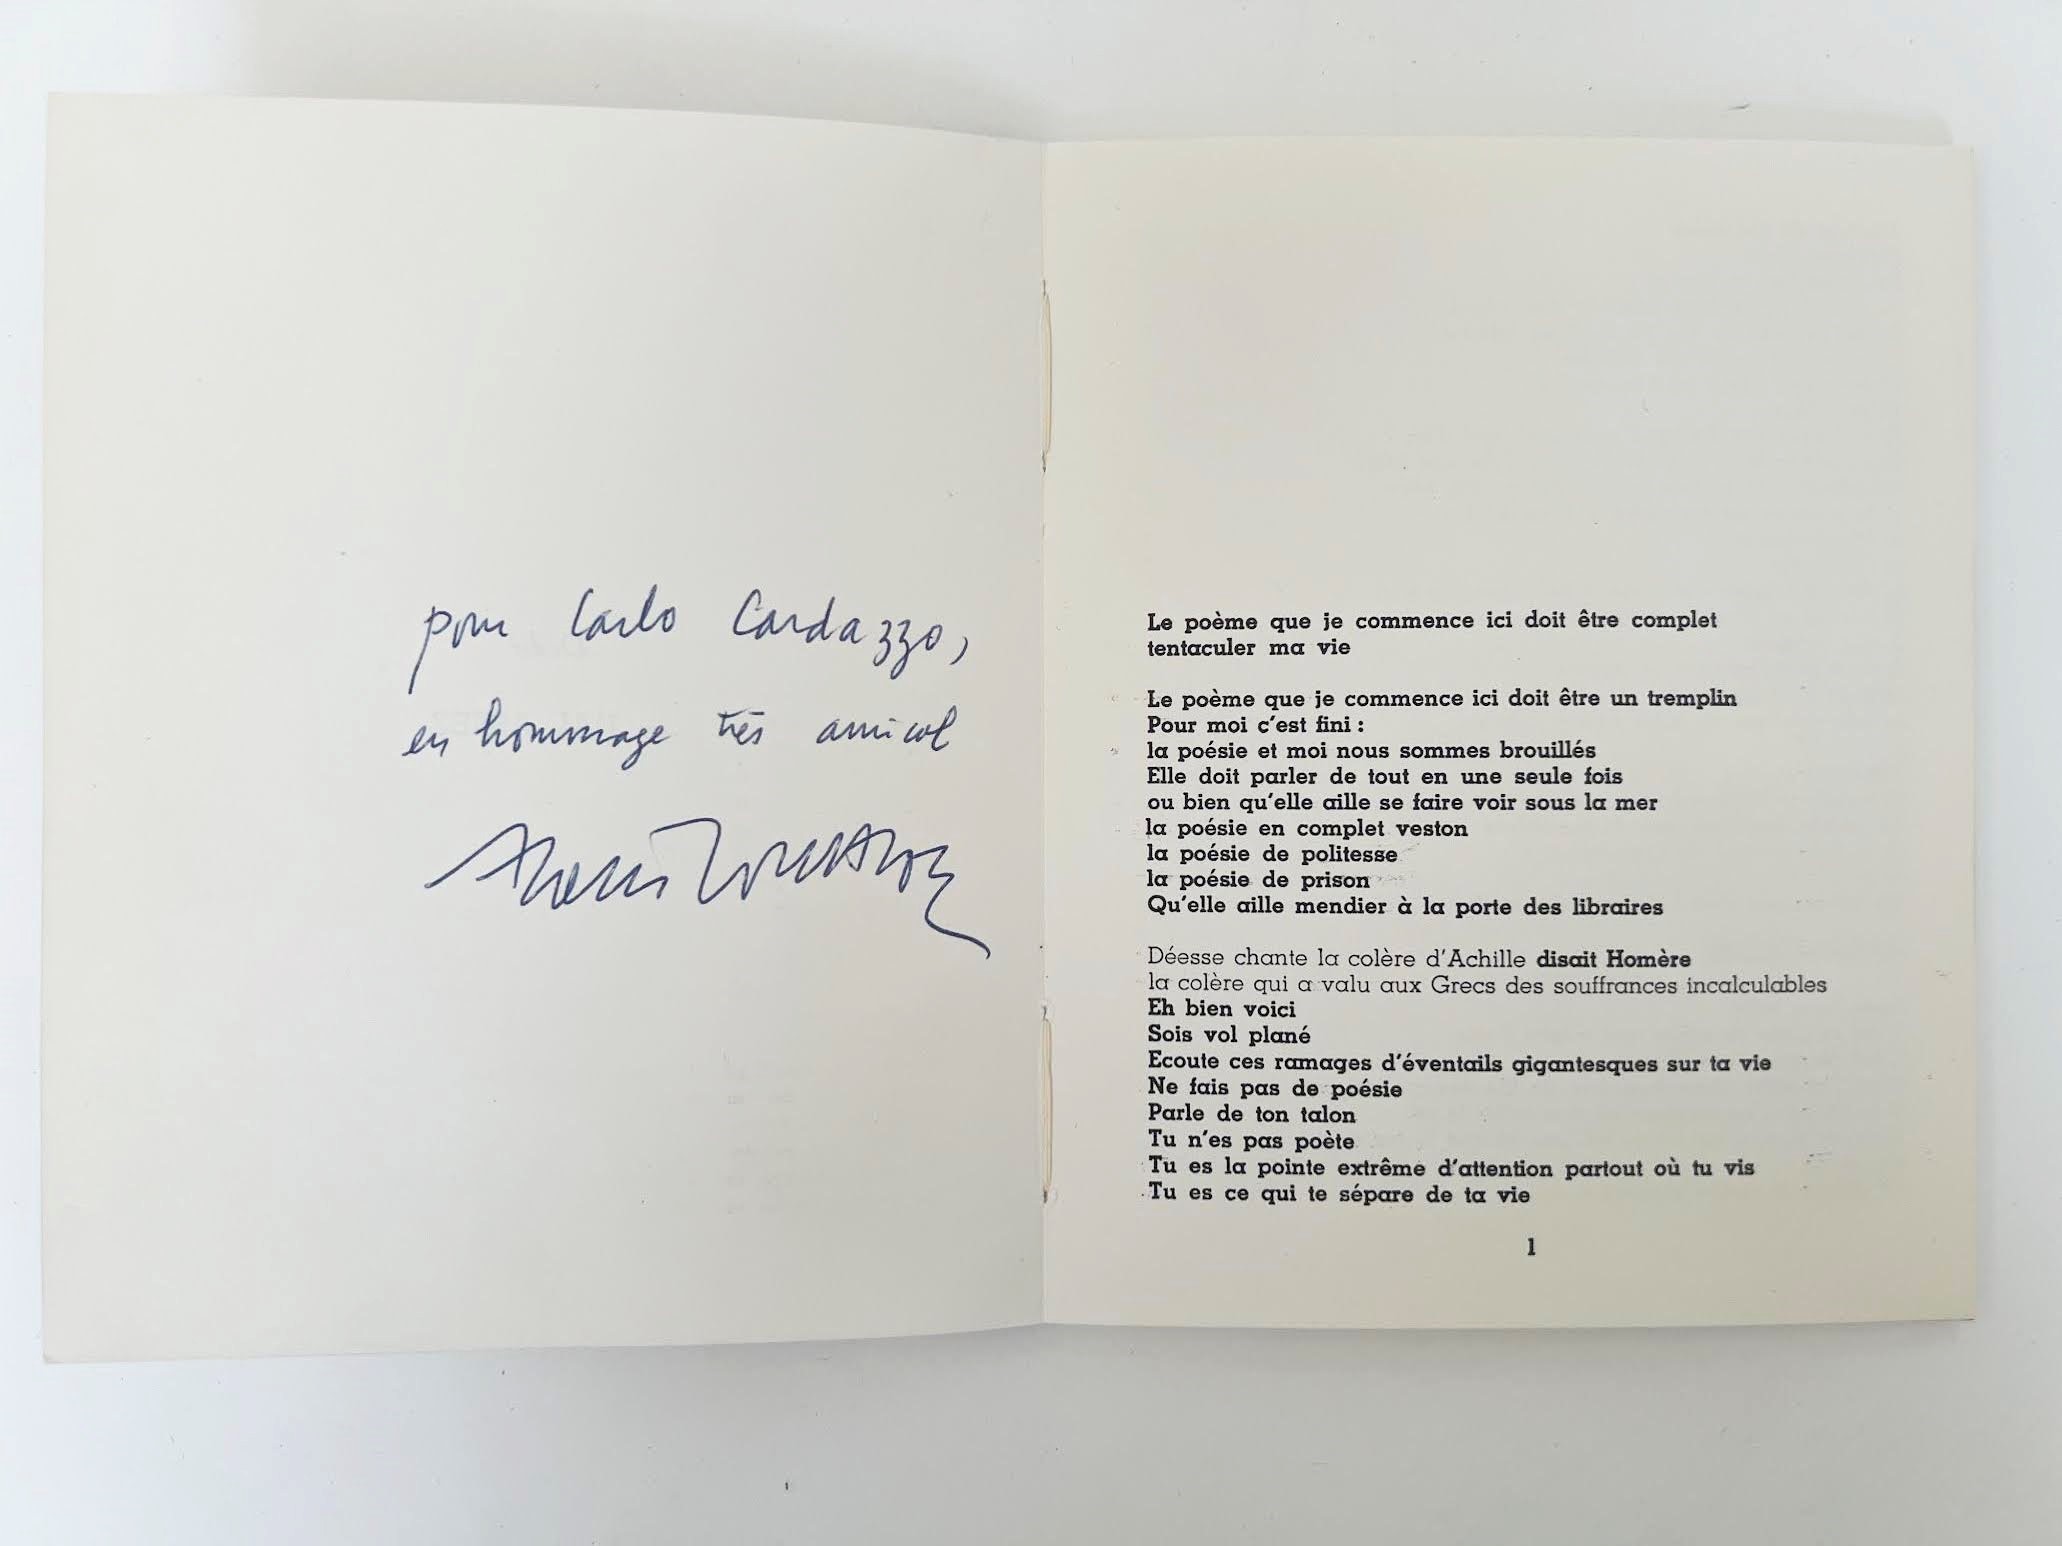 pour Carlo Cardazzo,
en hommage très amical
Le poème que je commence ici doit être complet
tentaculer ma vie
Le poème que je commence ici doit être un tremplin
Pour moi c'est fini :
la poésie et moi nous sommes brouillés
Elle doit parler de tout en une seule fois
ou bien qu'elle aille se faire voir sous la mer
la poésie en complet veston
la poésie de politesse
la poésie de prison
Qu'elle aille mendier à la porte des libraires
Déesse chante la colère d'Achille disait Homère
la colère qui a valu aux Grecs des souffrances incalculables
Eh bien voici
Sois vol plané
Ecoute ces ramages d'éventails gigantesques sur ta vie
Ne fais pas de poésie
Parle de ton talon
Tu n'es pas poète
Tu es la pointe extrême d'attention partout où tu vis
Tu es ce qui te sépare de ta vie
1